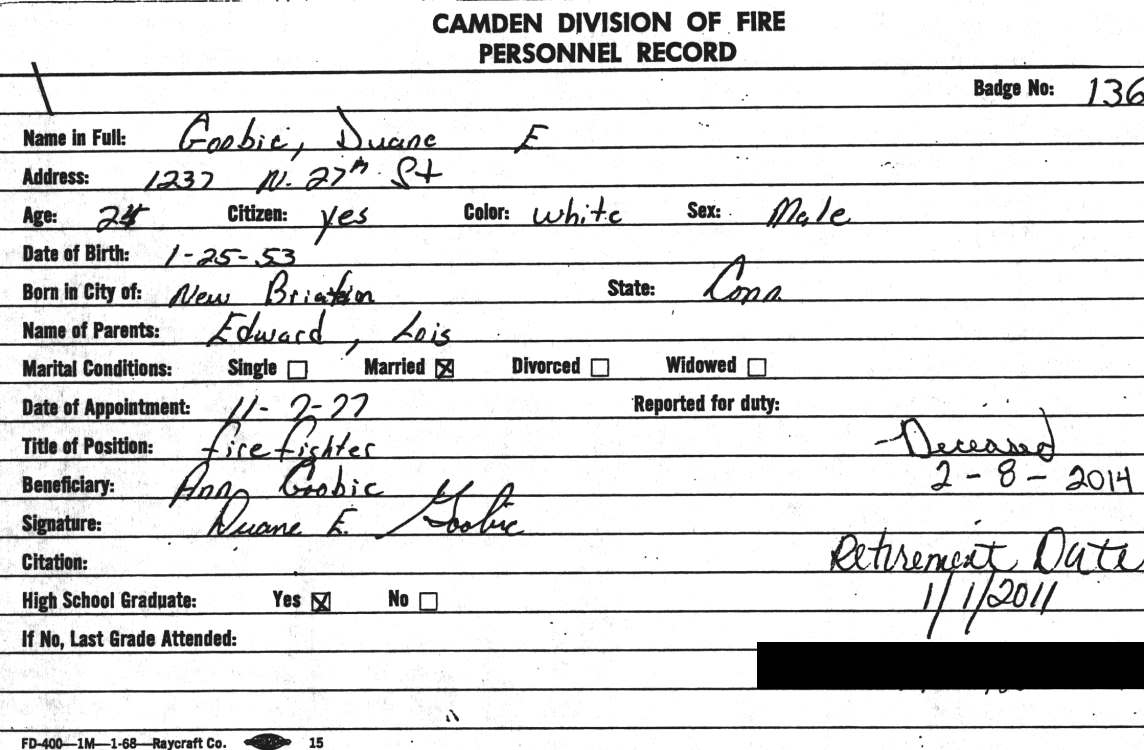 CAMDEN DIVISION OF FIRE
PERSONNEL RECORD
Badge No: 136
Name in Full: Goobic, Duane E
Address: 1237 N. 27th St
Age: 24 Citizen: yes Color: white Sex: Male
Date of Birth: 1-25-53
Born in City of: New State: Conn.
Name of Parents: Edward, Lois
Marital Conditions: Single ☐ Married ☒ Divorced ☐ Widowed ☐
Date of Appointment: 11-7-77 Reported for duty:
Title of Position: firefighter - Deceased
Beneficiary: Ann Goobic 2-8-2014
Signature: Duane E. Goobic
Citation: Retirement Date
High School Graduate: Yes ☒ No ☐ 1/1/2011
If No, Last Grade Attended:
FD-400—1M—1-68—Raycraft Co. 15